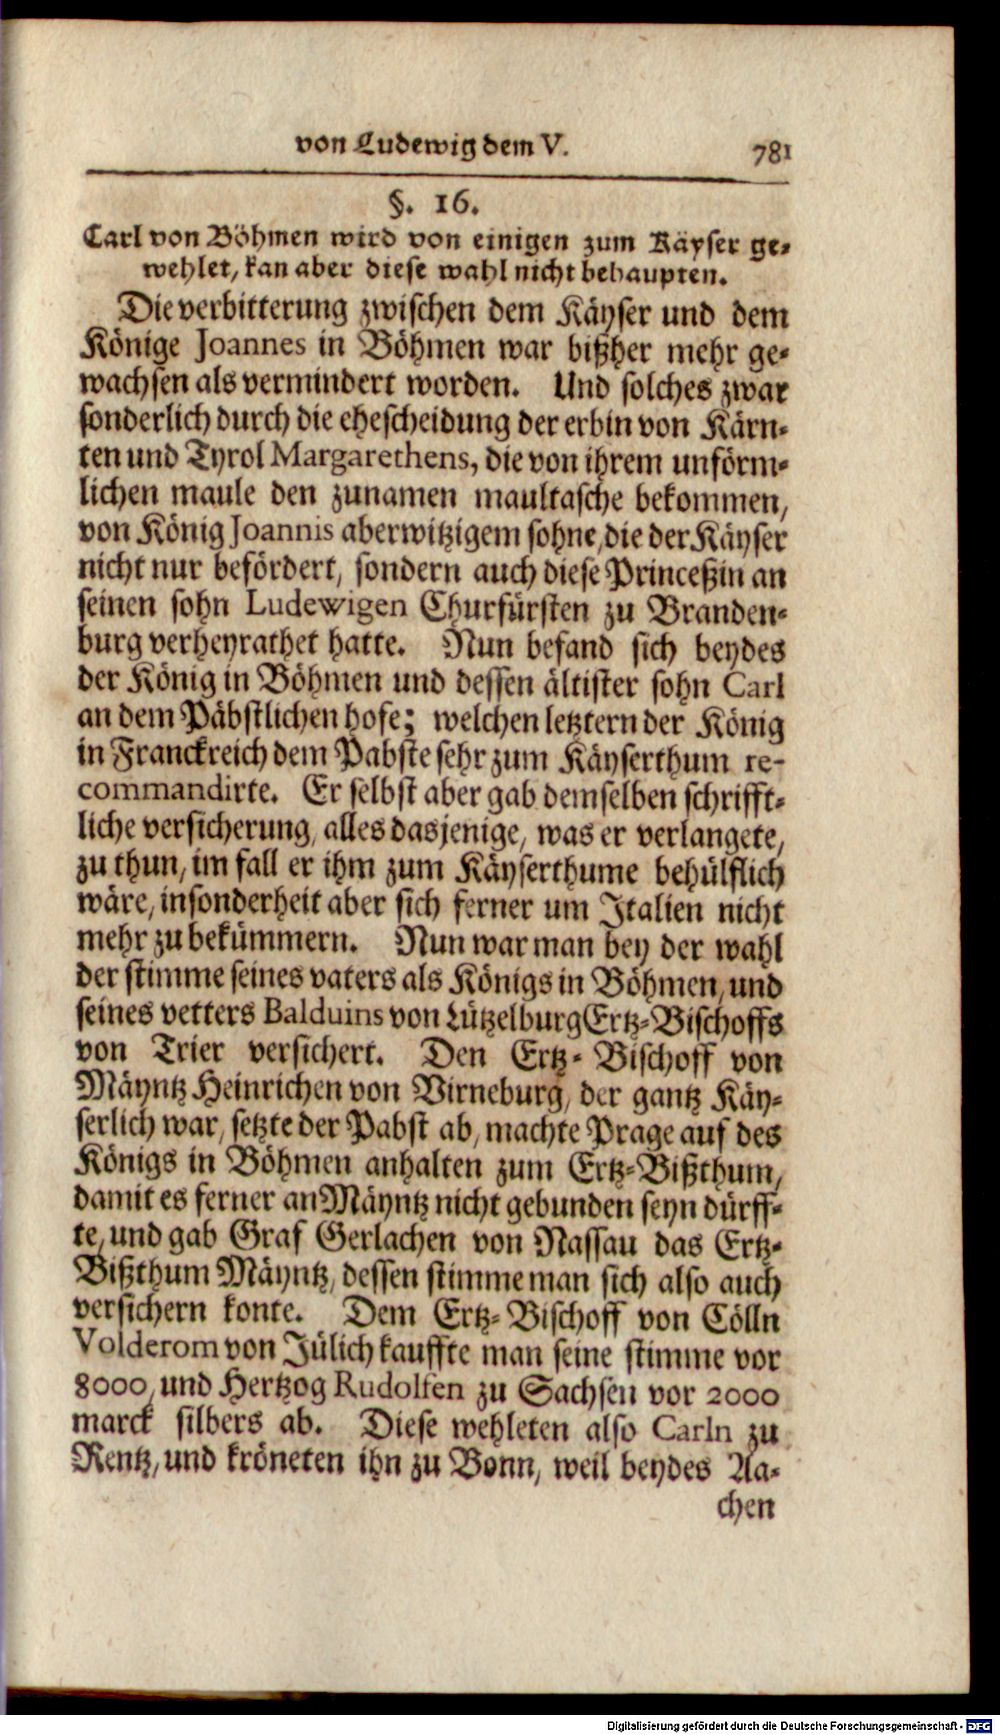 von Ludewig dem V. 781
§. 16.
Carl von Böhmen wird von einigen zum Käyser ge-
wehlet, kan aber diese wahl nicht behaupten.
Die verbitterung zwischen dem Käyser und dem
Könige Joannes in Böhmen war bißher mehr ge-
wachsen als vermindert worden. Und solches zwar
sonderlich durch die ehescheidung der erbin von Kärn-
ten und Tyrol Margarethens, die von ihrem unförm-
lichen maule den zunamen maultasche bekommen,
von König Joannis aberwitzigem sohne, die der Käyser
nicht nur befördert, sondern auch diese Princeßin an
seinen sohn Ludewigen Churfürsten zu Branden-
burg verheyrathet hatte. Nun befand sich beydes
der König in Böhmen und dessen ältister sohn Carl
an dem Päbstlichen hofe; welchen letztern der König
in Franckreich dem Pabste sehr zum Käyserthum re-
commandirte. Er selbst aber gab demselben schrifft-
liche versicherung, alles dasjenige, was er verlangete,
zu thun, im fall er ihm zum Käyserthume behülflich
wäre, insonderheit aber sich ferner um Italien nicht
mehr zu bekümmern. Nun war man bey der wahl
der stimme seines vaters als Königs in Böhmen, und
seines vetters Balduins von Lützelburg Ertz-Bischoffs
von Trier versichert. Den Ertz-Bischoff von
Mäyntz Heinrichen von Virneburg, der gantz Käy-
serlich war, setzte der Pabst ab, machte Prage auf des
Königs in Böhmen anhalten zum Ertz-Bißthum,
damit es ferner an Mäyntz nicht gebunden seyn dürff-
te, und gab Graf Gerlachen von Nassau das Ertz-
Bißthum Mäyntz, dessen stimme man sich also auch
versichern konte. Dem Ertz-Bischoff von Cölln
Volderom von Jülich kauffte man seine stimme vor
8000, und Hertzog Rudolfen zu Sachsen vor 2000
marck silbers ab. Diese wehleten also Carln zu
Rentz, und kröneten ihn zu Bonn, weil beydes Aa-
chen
Digitalisierung gefördert durch die Deutsche Forschungsgemeinschaft - DFG